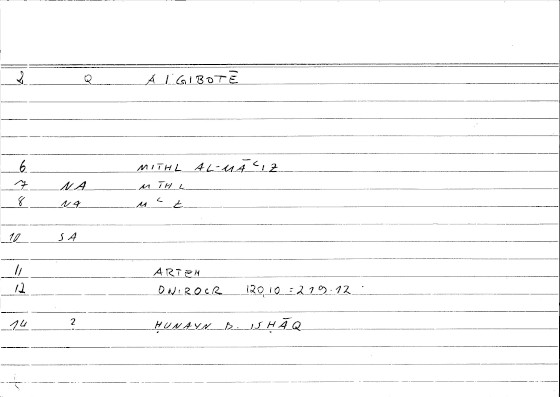 2 Q AI GIBOTĒ
6 MITHL AL-MĀʿIZ
7 NA MTHL
8 NA MʿZ
10 SA
11 ARTEM
12 ONIROCR 120,10 = 219.12
14 ? ḤUNAYN B. ISḤĀQ